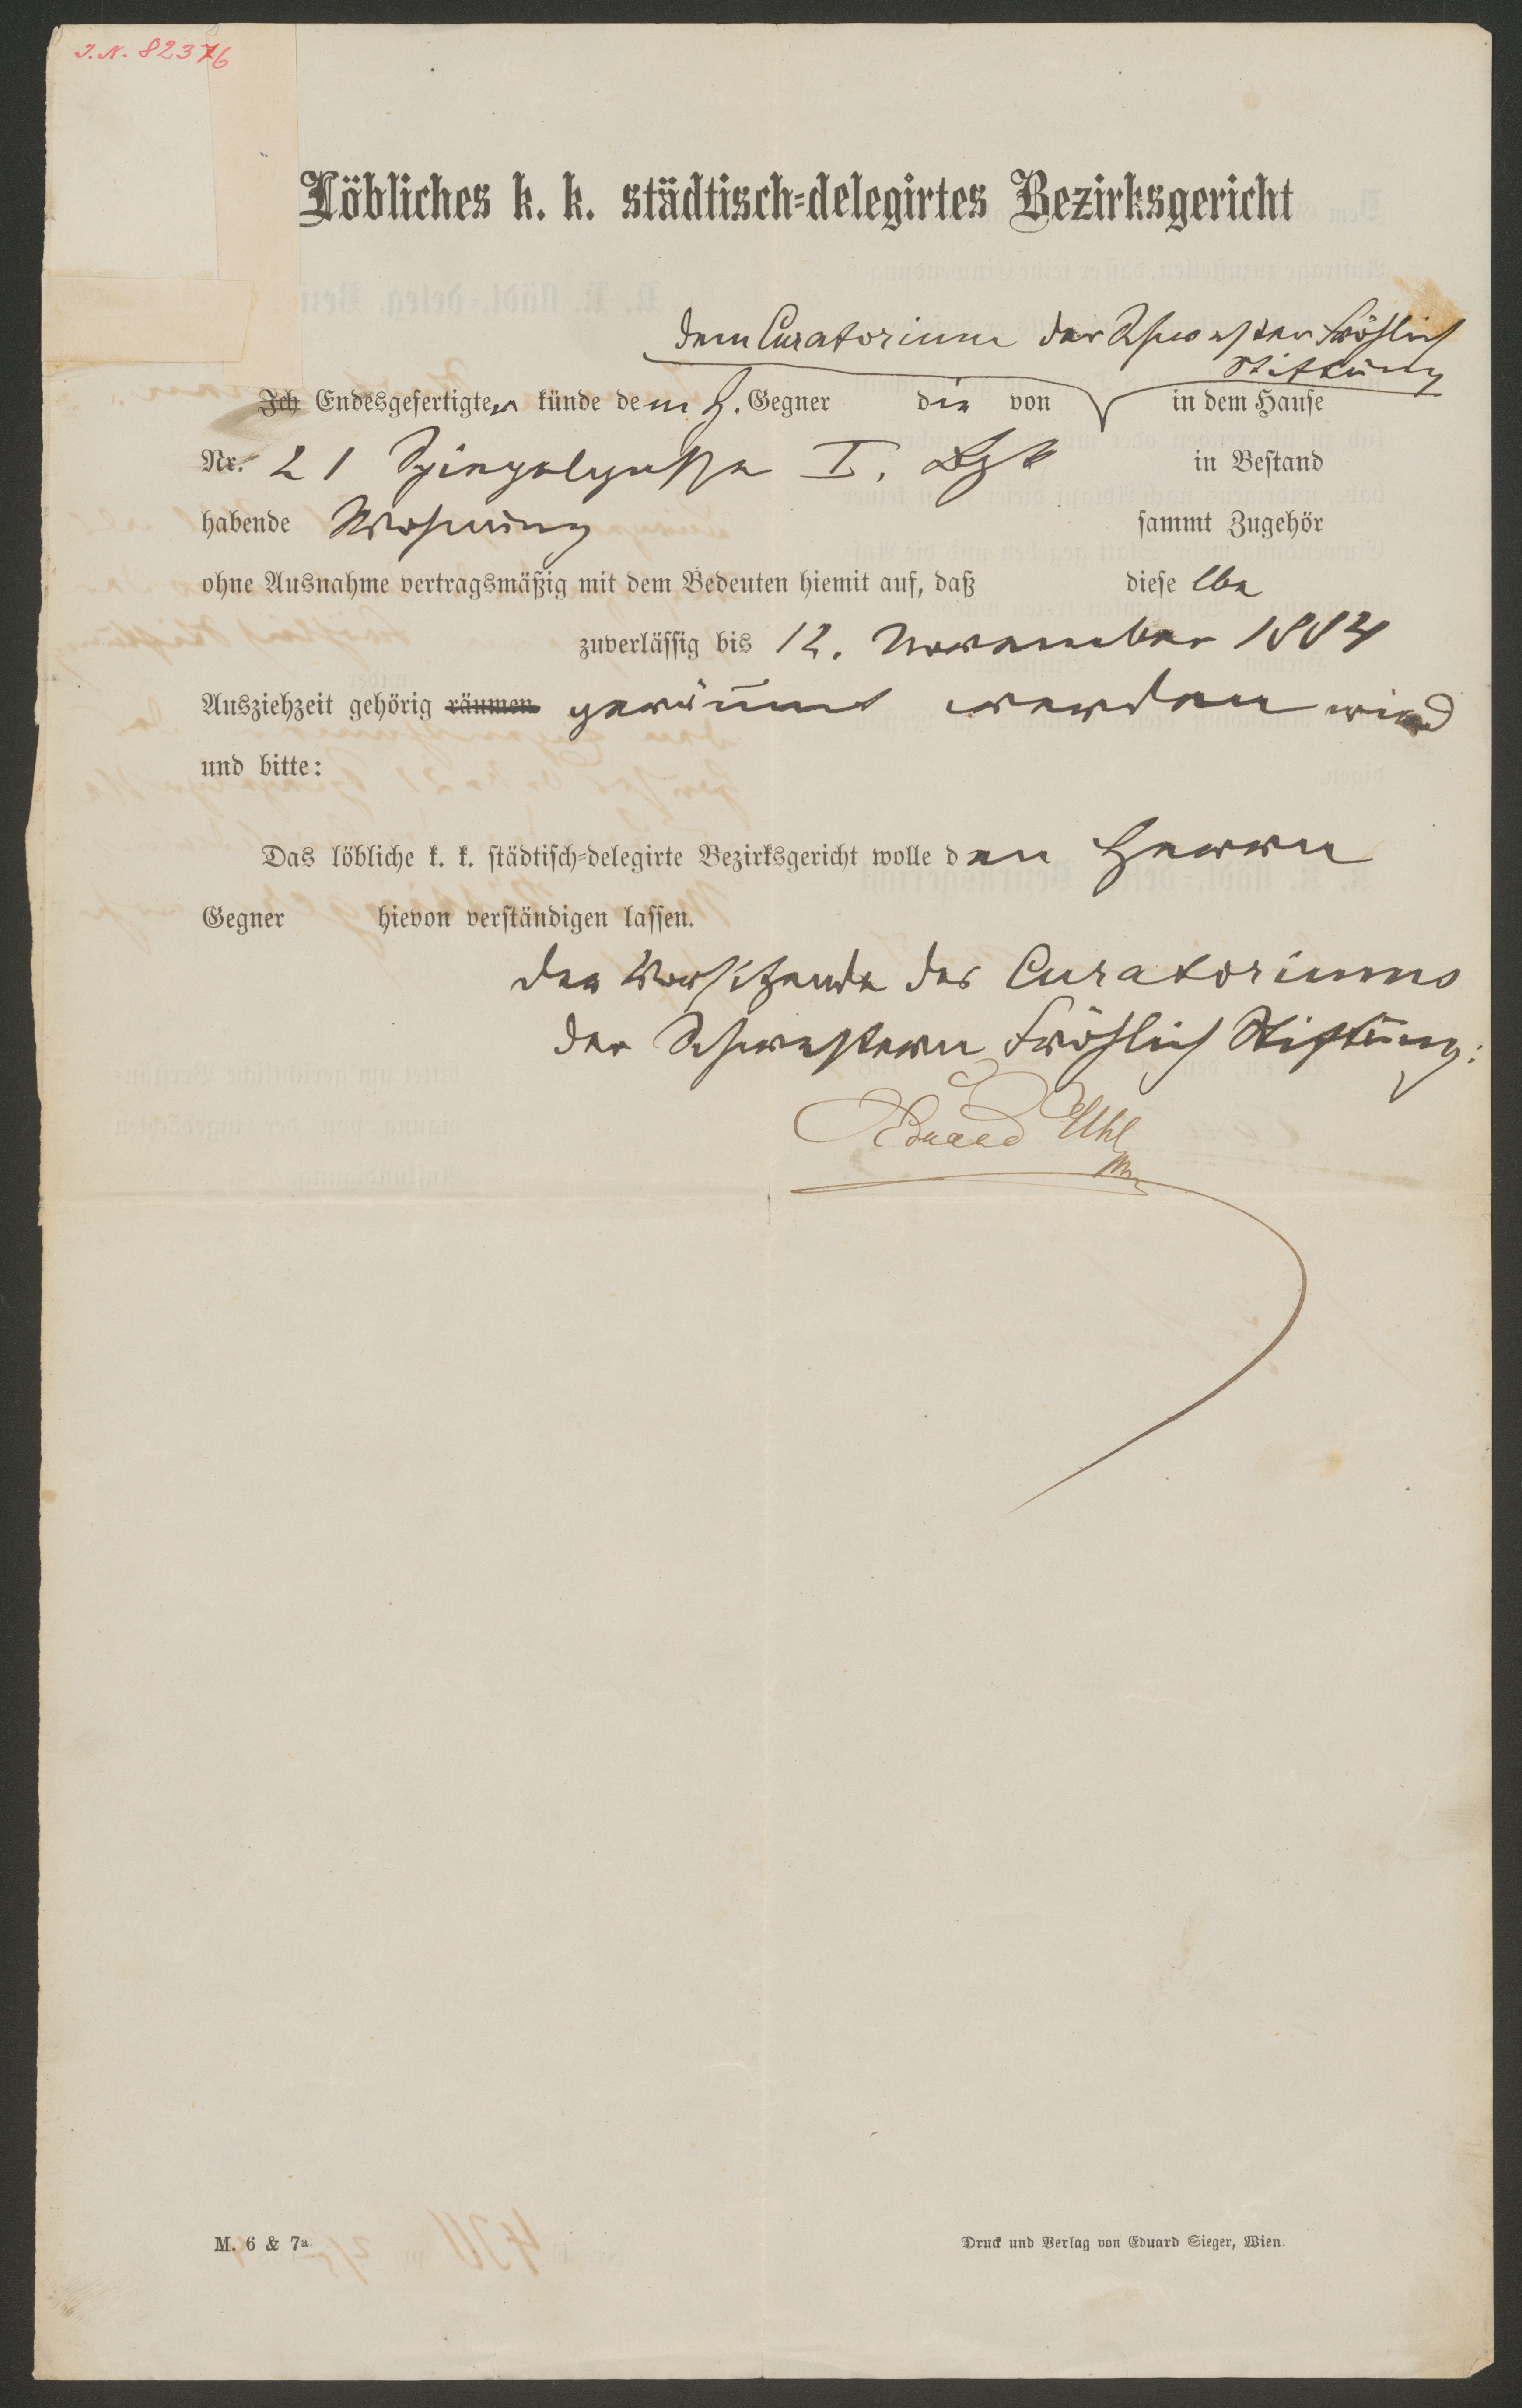 I.N. 82376
Löbliches k. k. städtisch-delegirtes Bezirksgericht
dem Curatorium der Schwestern Fröhlich
Stiftung
Ich Endesgefertigter künde dem H. Gegner die von in dem Hause
Nr. 21 Spiegelgasse I. Bzk in Bestand
habende Wohnung sammt Zugehör
ohne Ausnahme vertragsmäßig mit dem Bedeuten hiemit auf, daß dieselbe
zuverlässig bis 12. November 1884
Ausziehzeit gehörig räumen geräumt werden wird
und bitte:
Das löbliche k. k. städtisch-delegirte Bezirksgericht wolle den Herrn
Gegner hievon verständigen lassen.
Der Vorsitzende des Curatoriums
der Schwestern Fröhlich Stiftung:
Eduard Uhl
M. 6 & 7a
Druck und Verlag von Eduard Sieger, Wien.